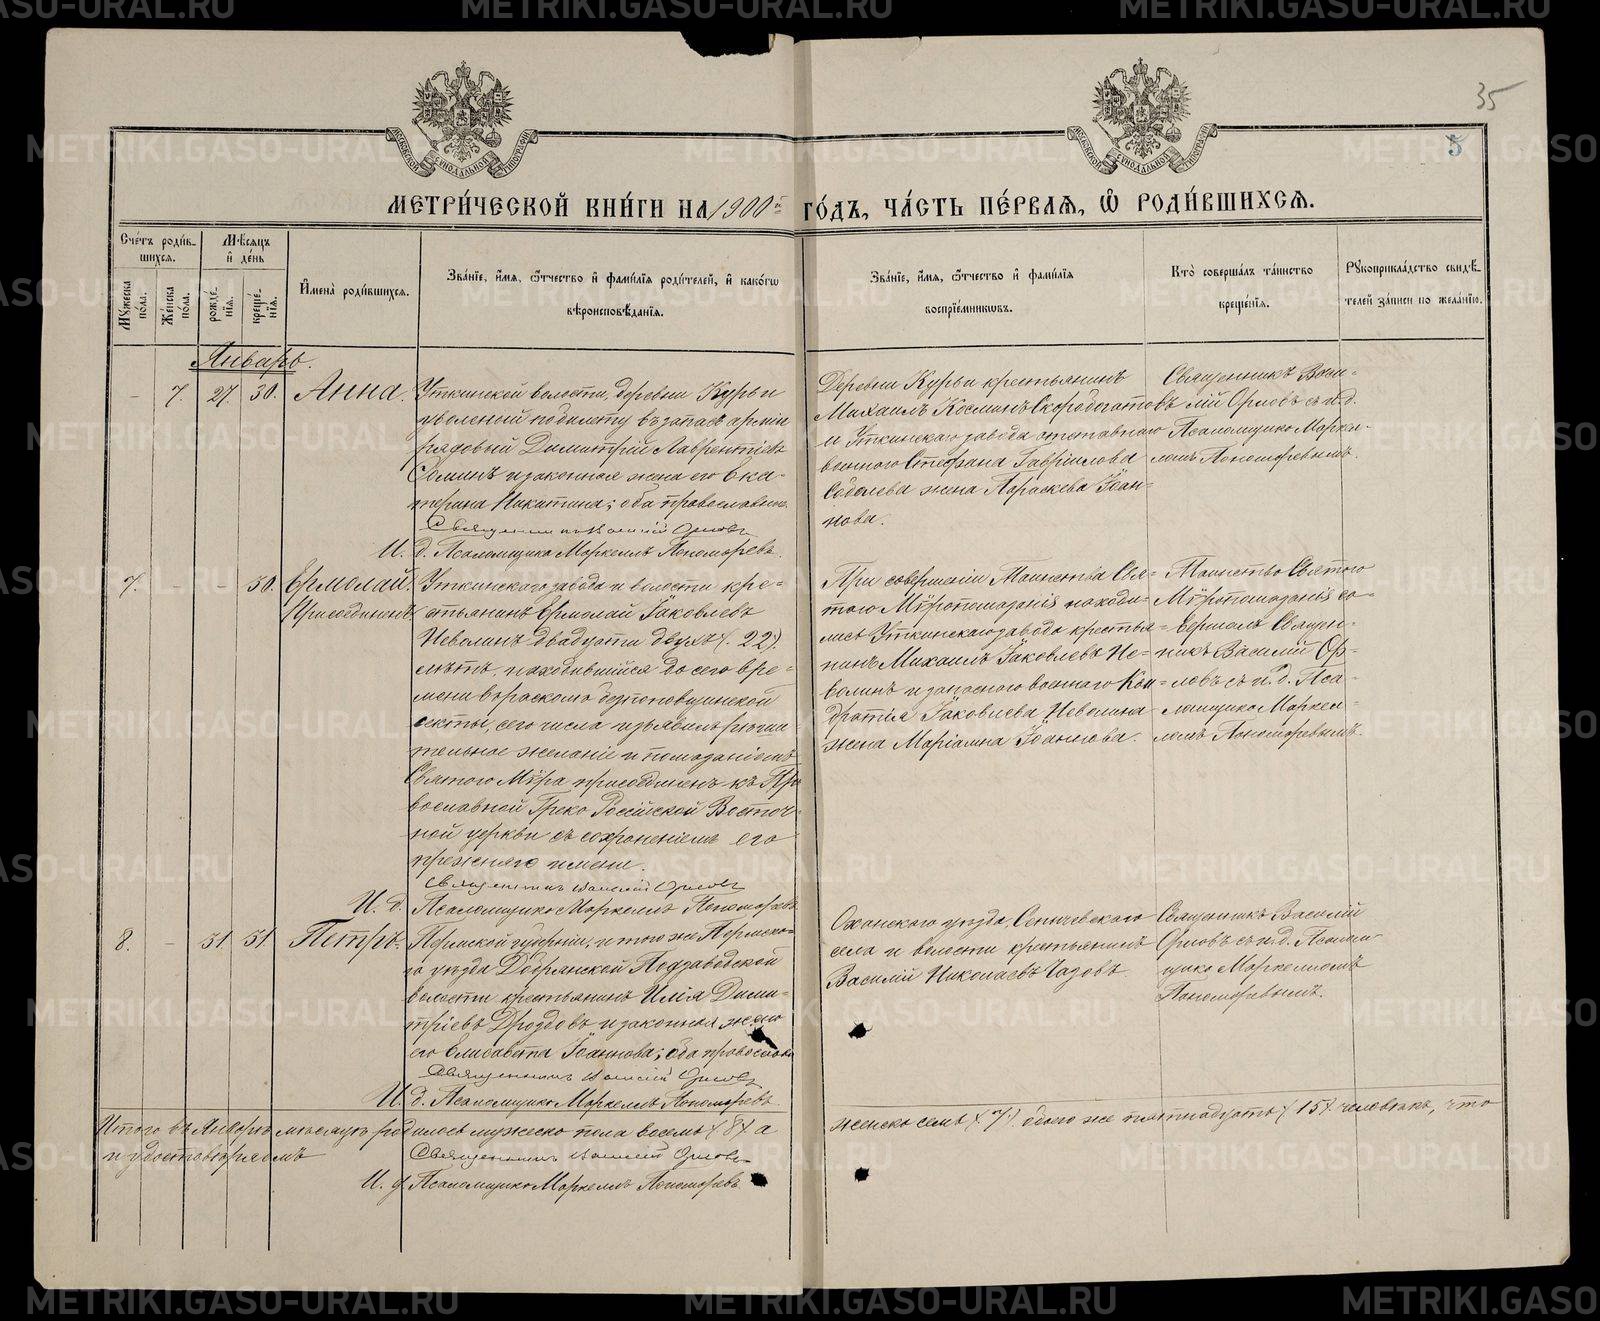 35
5
МЕТРИ́ЧЕСКОЙ КНИ́ГИ НА 1900й ГО́ДЪ, ЧА́СТЬ ПЕ́РВАѦ, Ѽ РОДИ́ВШИХСѦ.
Сче́тъ роди́в-
шихсѧ.
Мꙋжеска по́ла.
Же́нска по́ла.
Мѣ́сѧцъ
и҆ де́нь
рожде́-
нїѧ.
креще́-
нїѧ.
И҆мена̀ роди́вшихсѧ.
Зва́нїе, и҆́мѧ, ѻ҆́тчество и҆ фами́лїѧ роди́телей, и҆ како́гѡ
вѣроисповѣ́данїѧ.
Зва́нїе, и҆́мѧ, ѻ҆́тчество и҆ фами́лїѧ
воспрїе́мникѡвъ.
Кто̀ соверша́лъ та́инство
креще́нїѧ.
Рꙋкоприкла́дство свидѣ́-
телей за́писи по жела́нїю.
Январь.
- 7. 27. 30. Анна.
Уткинской волости, деревни Курьи
уволенный по билету въ запасъ арміи
рядовый Димитрій Лаврентіевъ
и законная жена его Ека-
терина Никитина; оба православные.
Священникъ Василій Орловъ
И. д. Псаломщика Маркеллъ Пономаревъ.
Деревни Курьи крестьянинъ
Михаилъ Косминъ Скоробогатовъ
и Уткинскаго завода отставнаго
военнаго Стефана Гавріилова
Соболева жена Параскева Іоан-
нова.
Священникъ Васи-
лій Орловъ съ и.д.
Псаломщика Марке-
ломъ Пономаревымъ.
7. - - 30. Ермолай.
Присоединенъ
Уткинскаго завода и волости кре-
стьянинъ Ермолай Іаковлевъ
Неволинъ двадцати двухъ (22)
лѣтъ, находившійся до сего вре-
мени въ расколѣ безпоповщинской
секты, сего числа изъявилъ рѣши-
тельное желаніе и помазаніемъ
Святого Мѵра присоединенъ къ Пра
вославной Греко Россійской Восточ-
ной церкви съ сохраненіемъ его
прежняго имени.
Священникъ Василій Орловъ
И. д. Псаломщика Маркеллъ Пономаревъ
При совершеніи Таинства Свя-
того Мѵропомазанія находи-
лись Уткинскаго завода крестья-
нинъ Михаилъ Іаковлевъ Не-
волинъ и запаснаго военнаго Кон-
дратія Іаковлева Неволина
жена Маріамна Іоаннова.
Таинство Святого
Мѵропомазанія со-
вершалъ Священ-
никъ Василій Ор-
ловъ съ и.д. Пса-
ломщика Маркел-
ломъ Пономаревымъ.
8. - 31 31 Петръ.
Пермской губерніи, и того же Пермска-
го уѣзда Добрянской Подзаводской
волости крестьянинъ Илія Дими-
тріевъ Дроздовъ и законная жена
его Елисавета Іоаннова; оба православн
Священникъ Василій Орловъ
И. д. Псаломщика Маркеллъ Пономаревъ
Оханскаго уѣзда, Сепычевскаго
села и волости крестьянинъ
Василій Николаевъ Чазовъ
Священникъ Василій
Орловъ съ и.д. Псалом-
щика Маркелломъ
Пономаревымъ.
Итого въ Январѣ мѣсяцѣ родилось мужеска пола восемь (8) а женска семь (7) обоего же пятнадцать (15) человѣкъ, что
и удостовѣряемъ
Священникъ Василій Орловъ
И. д. Псаломщика Маркеллъ Пономаревъ
METRIKI.GASO-URAL.RU